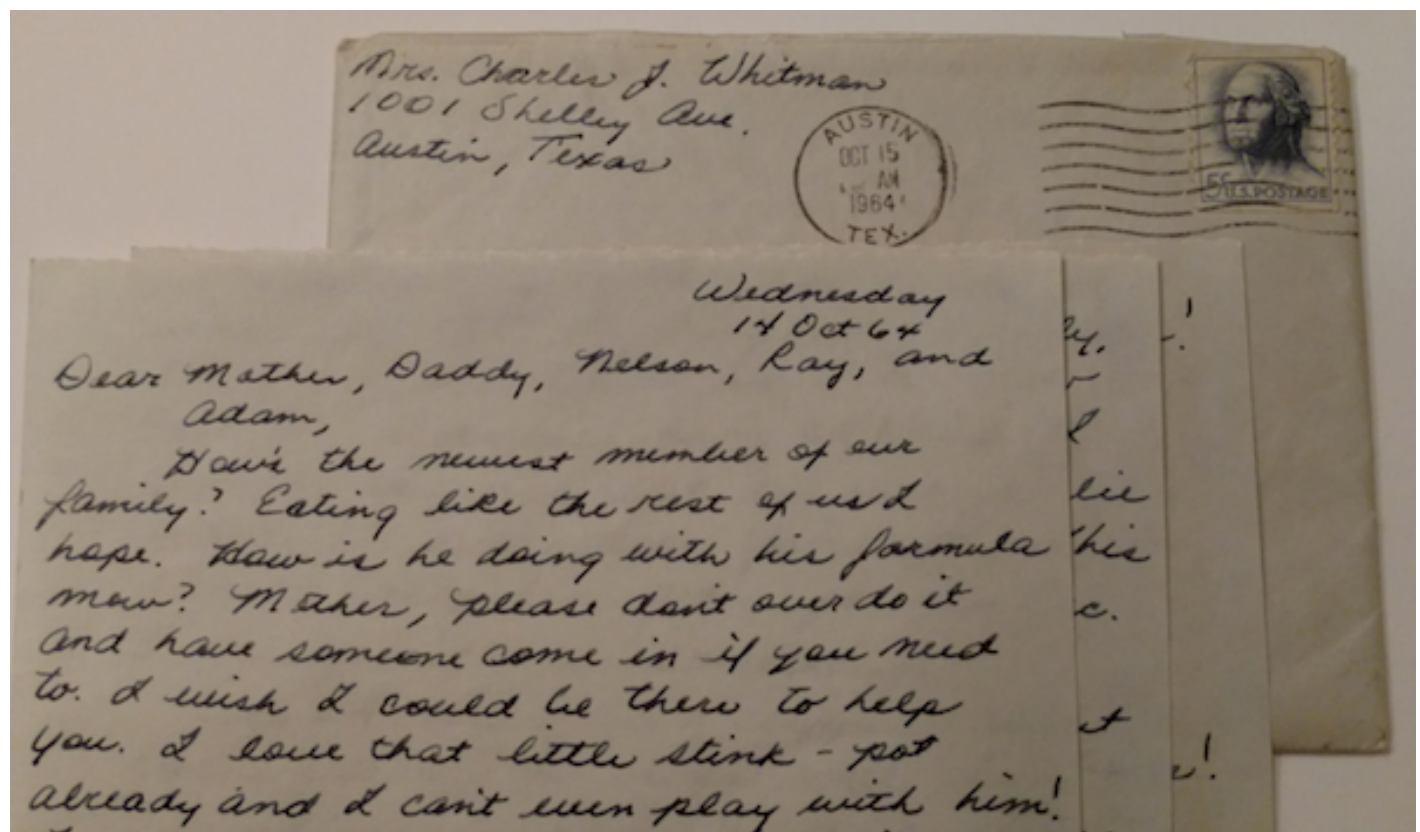 Mrs. Charles J. Whitman
1001 Shelley Ave.
Austin, Texas
AUSTIN
OCT 15
AM
1964
TEX.
5¢ U.S. POSTAGE
Wednesday
14 Oct 64
Dear Mother, Daddy, Nelson, Ray, and
Adam,
How's the newest member of our
family? Eating like the rest of us I
hope. How is he doing with his formula
now? Mother, please don't over do it
and have someone come in if you need
to. I wish I could be there to help
you. I love that little stink-pot
already and I can't even play with him!
y,
lie
his
c.
t
!
!